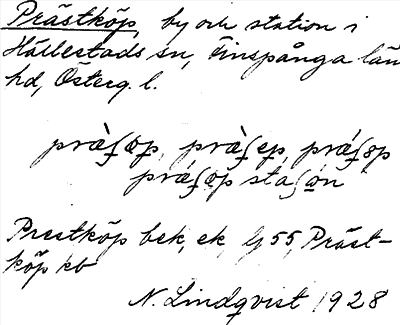 Prästköp, by och station i
Hällestads sn, Finspånga län
hd, Österg. l.
præ̀ʃøp, præ̀ʃep, prǽʃøp
prǽʃøp staʃón
Prestköp bek, ek, Gs 55, Präst-
köp kb
N. Lindqvist 1928